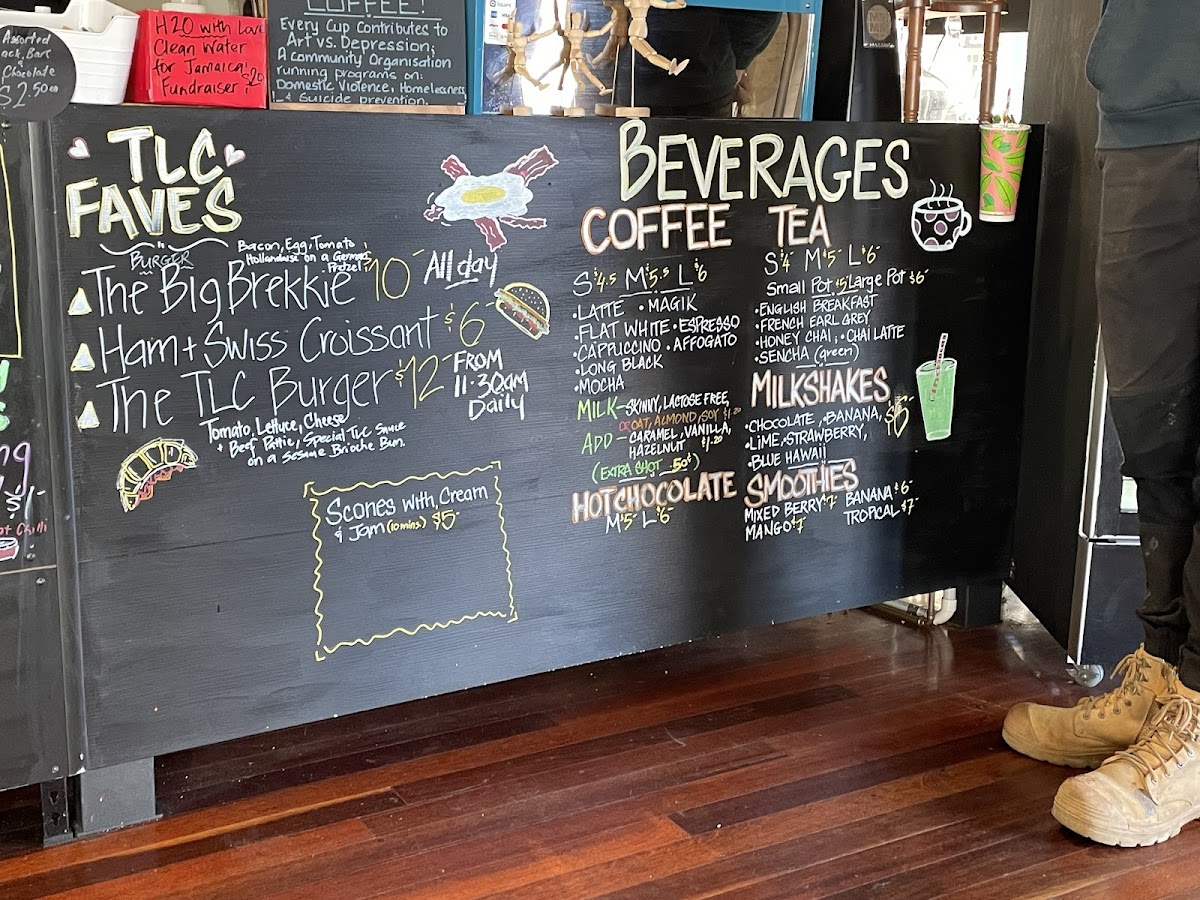 Assorted
Chocolate
$2.50ea
H2O with Love
Clean Water
for Jamaica
Fundraiser $20
COFFEE!
Every Cup Contributes to
Art vs. Depression;
A community Organisation
running programs on:
Domestic Violence, Homelessness
& Suicide prevention.
Square
TLC
FAVES
BURGER
Bacon, Egg, Tomato
Hollandaise on a German
Pretzel
The Big Brekkie 10-
All day
Ham + Swiss Croissant $6-
The TLC Burger $12-
FROM
11.30am
Daily
Tomato, Lettuce, Cheese
+ Beef Pattie, Special TLC Sauce
on a Sesame Brioche Bun.
Scones with Cream
& Jam (10 mins) $5-
BEVERAGES
COFFEE
S $4.5 M $5.5 L $6
•LATTE •MAGIK
•FLAT WHITE •ESPRESSO
•CAPPUCCINO •AFFOGATO
•LONG BLACK
•MOCHA
MILK - SKINNY, LACTOSE FREE,
OR OAT, ALMOND, SOY $1.20
ADD - CARAMEL, VANILLA,
HAZELNUT $1.20
(EXTRA SHOT .50¢)
HOT CHOCOLATE
M $5- L $6-
TEA
S $4- M $5- L $6-
Small Pot $5 Large Pot $6-
•ENGLISH BREAKFAST
•FRENCH EARL GREY
•HONEY CHAI; •CHAI LATTE
•SENCHA (green)
MILKSHAKES
•CHOCOLATE, •BANANA, $6-
•LIME, •STRAWBERRY,
•BLUE HAWAII
SMOOTHIES
MIXED BERRY $7- BANANA $6-
MANGO $7 TROPICAL $7-